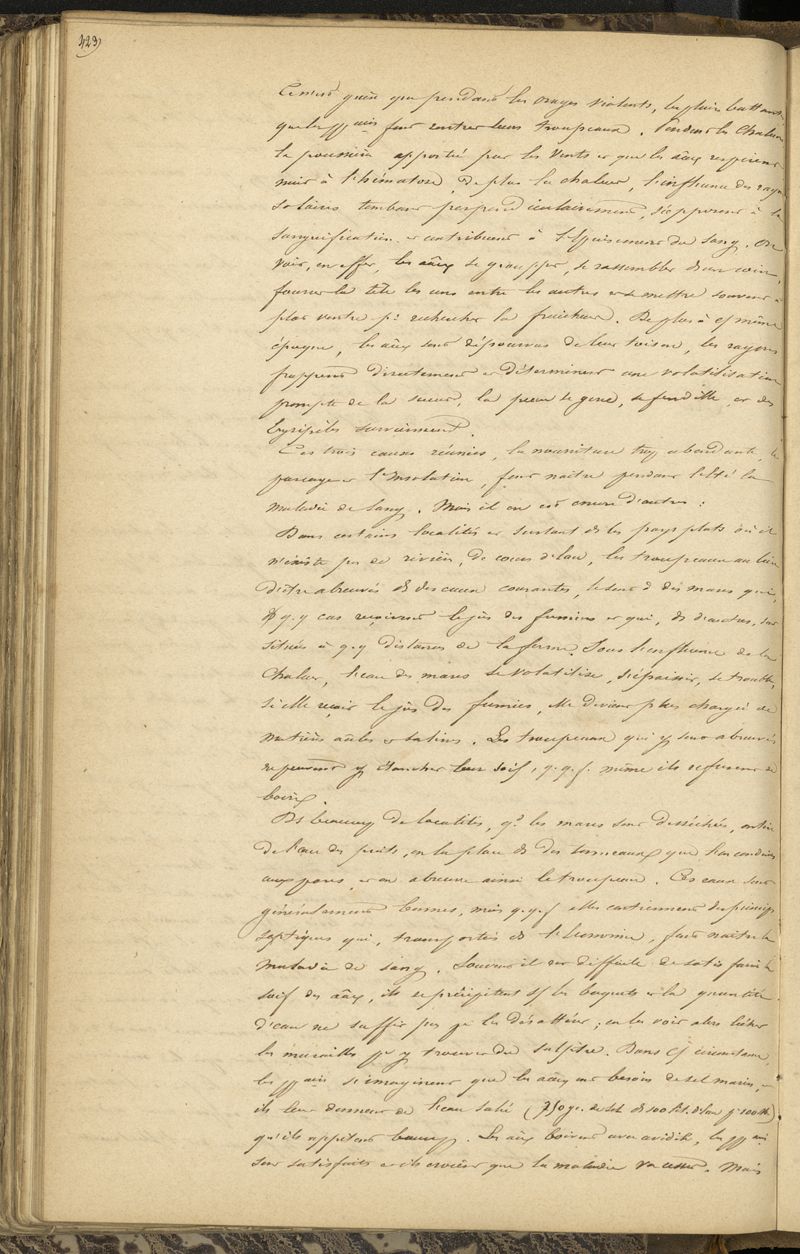 423)
Ce n'est guère que pendant les orages violents, les pluies battantes
que les ppaires font rentrer leurs troupeaux. Pendant les chaleurs
la poussière apportée par les vents et que les aux respirent
nuit à l'hématose. De plus la chaleur, l'influence des rayons
solaires tombant perpendiculairement, s'opposent à la
sanguification et contribuent à l'épuisement du sang. On
voit, en effet, les aux se grouper, se rassembler dans un coin,
fourrer la tête les uns entre les autres et se mettre souvent à
plat ventre pr rechercher la fraîcheur. De plus à cj même
époque, les aux sont dépourvus de leur toison, les rayons
frappent directement et déterminent une volatilisation
prompte de la sueur, la peau se gerce, se fendille et des
Erysipèles surviennent.
Ces trois causes réunies, la nourriture trop abondante, le
parcage et l'insolation, font naître pendant l'été la
maladie de sang. Mais il en est encore d'autres :
Dans certaines localités et surtout ds les pays plats où il
n'existe pas de rivière, de cours d'eau, les troupeaux au lieu
d'être abreuvés ds des eaux courantes, le sont ds des mares qui,
ds q.q cas reçoivent le jus des fumiers et qui, ds d'autres, sont
situées à q.q distance de la ferme. Sous l'influence de la
chaleur, l'eau des mares se volatilise, s'épaissit, se trouble,
si elle reçoit le jus des fumiers, elle devient plus chargée de
matières aales et salines. Les troupeaux qui y sont abreuvés
ne peuvent y étancher leur soif, q.q.f. même ils refusent de
boire.
Ds beaucoup de localités, qd les mares sont desséchées, on tire
de l'eau des puits, on la place ds des tonneaux que l'on conduit
aux parcs et on abreuve ainsi le troupeau. Ces eaux sont
généralement bonnes, mais q.q.f elles contiennent des principes
septiques qui, transportés ds l'économie, font naître la
maladie de sang. Souvent il est difficile de satisfaire la
soif des aux, ils se précipitent s/ les baquets et la quantité
d'eau ne suffit pas pr les désaltérer ; on les voit alors lécher
les murailles pr y trouver du salpêtre. Dans cj circonstance,
les ppaires s'imaginent que les aux ont besoin de sel marin,
ils leur donnent de l'eau salée (750 gr. de sel ds 100 lit. d'eau pr 100 )
qu'ils appètent beaucoup. Les aux boivent avec avidité, les ppaires
sont satisfaits et ils croient que la maladie va cesser. Mais